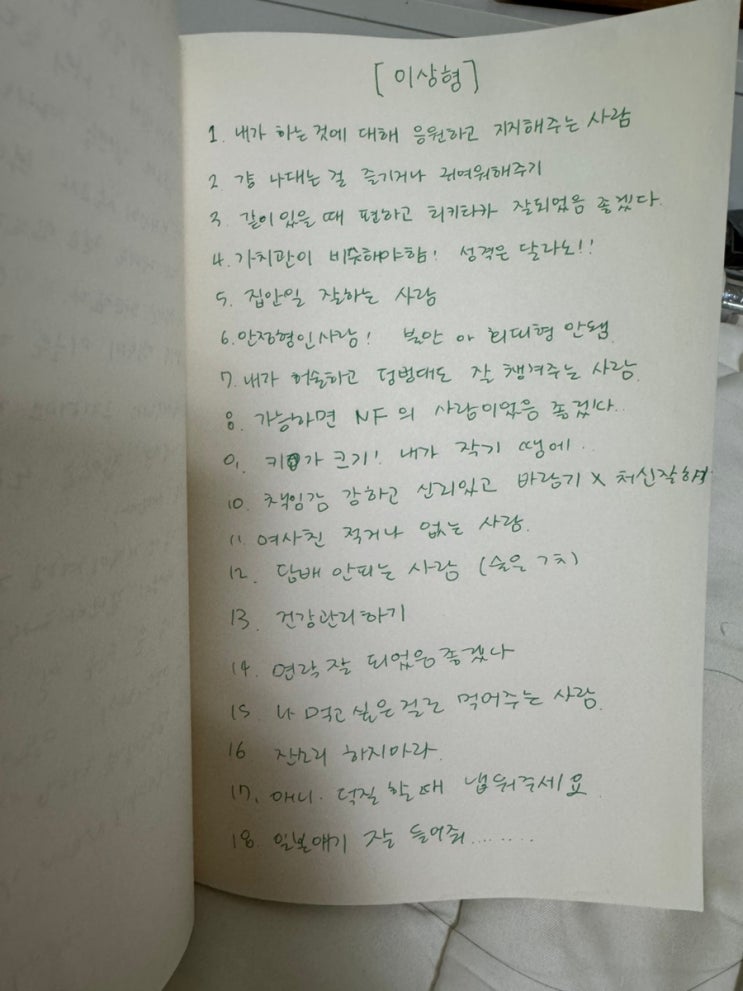 [이상형]
1. 내가 하는것에 대해 응원하고 지지해주는 사람
2 걍 나대는 걸 즐기거나 귀여워해주기
3. 같이있을 때 편하고 티키타카 잘되었음 좋겠다.
4. 가치관이 비슷해야함! 성격은 달라도!!
5. 집안일 잘하는 사람
6. 안정형인사람! 불안 아 회피형 안됌
7. 내가 허술하고 덤벙대도 잘 챙겨주는 사람
8. 가능하면 NF의 사람이었음 좋겠다..
9. 키가 크기! 내가 작기 땜에..
10. 책임감 강하고 신뢰있고 바람기 X 처신잘해
11. 여사친 적거나 없는 사람.
12. 담배 안피는 사람 (술은 가치)
13. 건강관리하기
14. 연락잘 되었음좋겠다
15. 나 먹고싶은걸로 먹어주는 사람.
16 잔소리 하지마라.
17. 애니. 덕질 할때 냅둬주세요
18. 일본얘기 잘 들어줘........